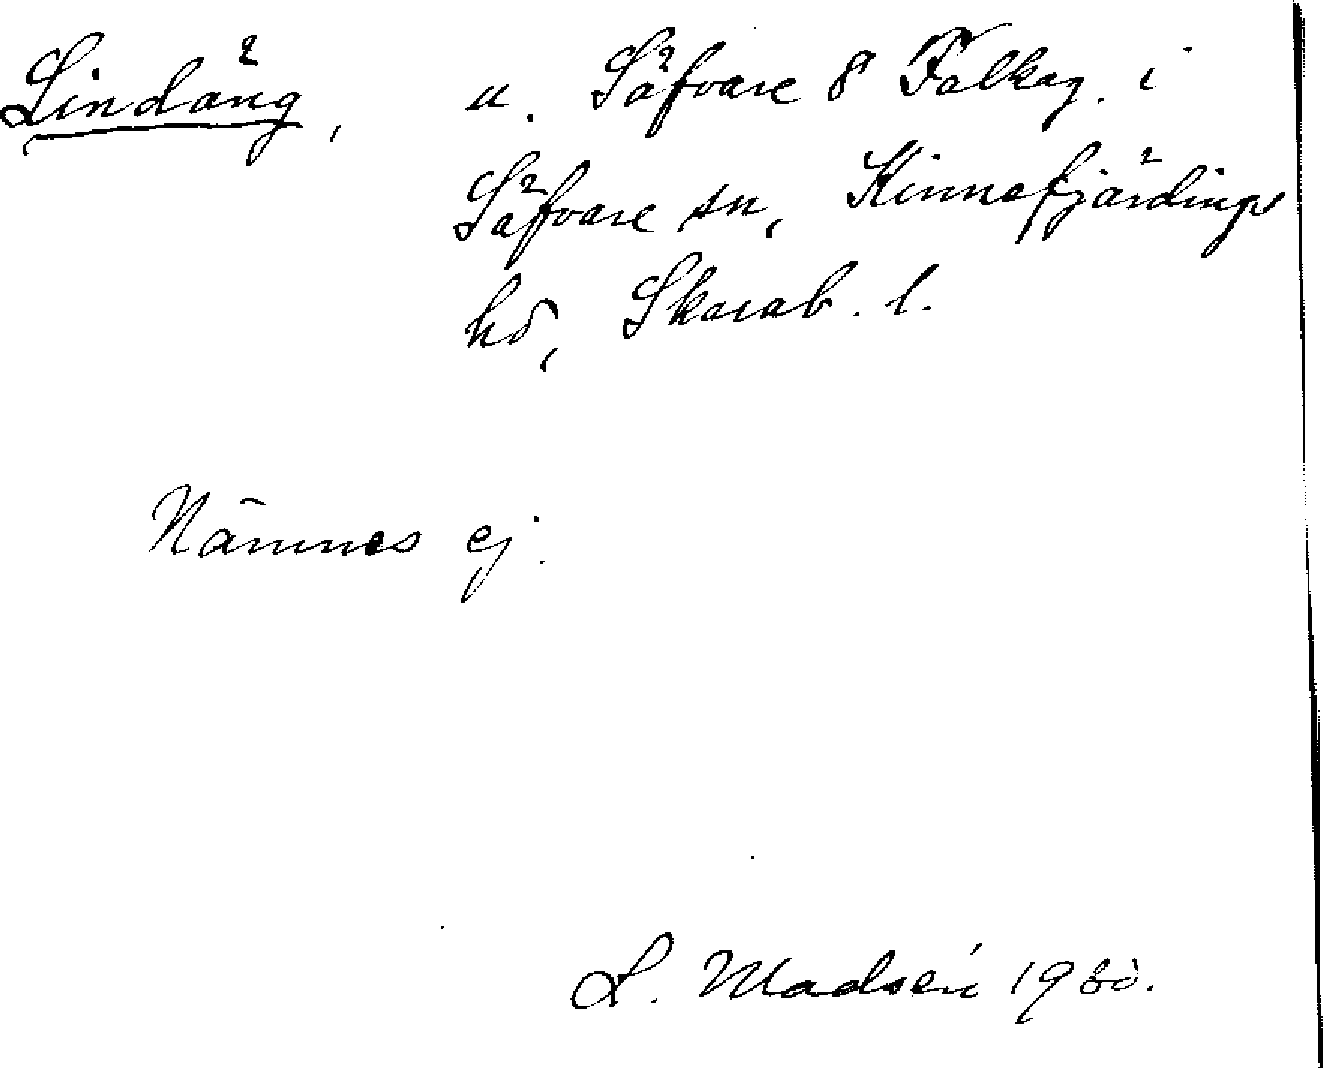 Lindäng, u. Säfvare 8 Falkäg. i
Säfvare sn, Kinnefjärdings
hd, Skarab. l.
Nämnes ej.
L. Madsén